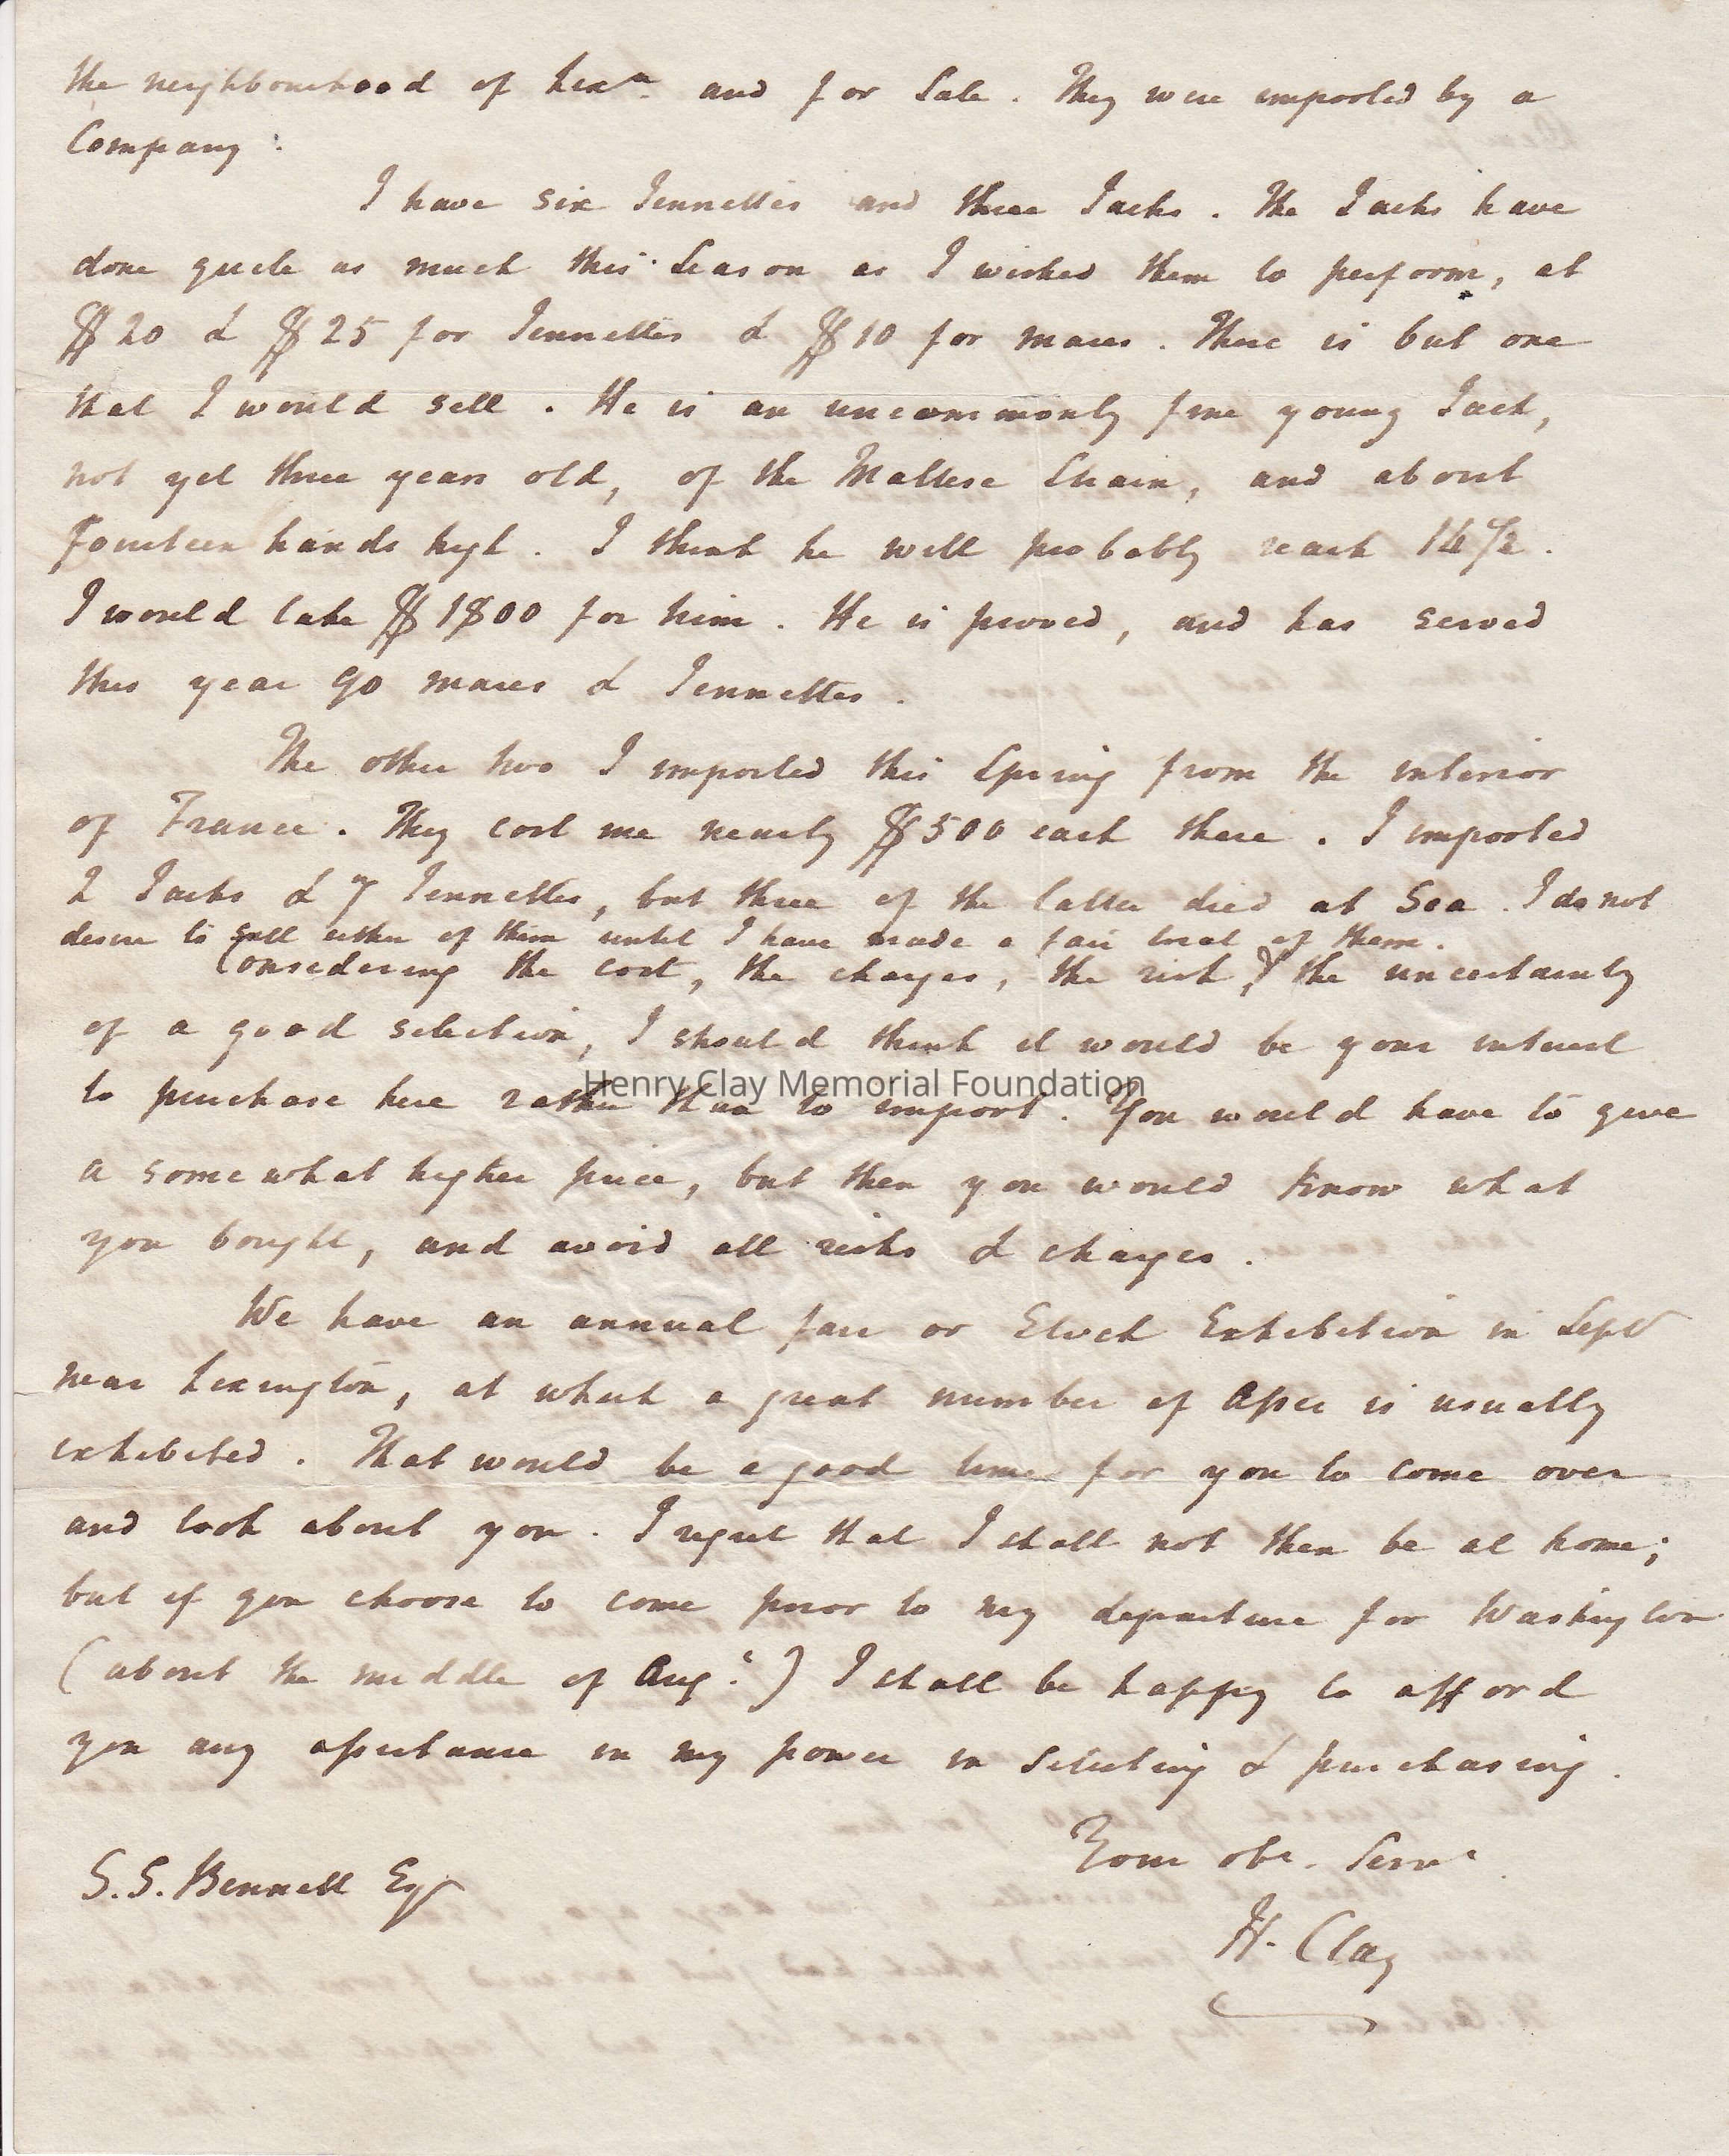 the neighbourhood of Lexn. and for Sale. They were imported by a
Company.
I have six Jennetts and three Jacks. The Jacks have
done quite as much this Season as I wished them to perform, at
$20 & $25 for Jennetts & $10 for mares. There is but one
that I would sell. He is an uncommonly fine young Jack,
not yet three years old, of the Maltese Strain, and about
Fourteen hands high. I think he will probably reach 14 1/2.
I would take $1800 for him. He is proved, and has served
this year 90 mares & Jennetts.
The other two I imported this Spring from the interior
of France. They cost me nearly $500 each there. I imported
2 Jacks & 7 Jennetts, but three of the latter died at Sea. I do not
desire to sell either of them until I have made a fair trial of them.
Considering the cost, the charges, the risk, & the uncertainty
of a good selection, I should think it would be your interest
to purchase here rather than to import. You would have to give
Henry Clay Memorial Foundation
a somewhat higher price, but then you would know what
you bought, and avoid all risks & charges.
We have an annual fair or Stock Exhibition in Sept
near Lexington, at which a great number of Asses is usually
exhibited. That would be a good time for you to come over
and look about you. I regret that I shall not then be at home;
but if you choose to come prior to my departure for Washington
(about the middle of Aug.t) I shall be happy to afford
you any assistance in my power in selecting & purchasing.
Your obt. Servt
S.S. Bennett Esqr
H. Clay